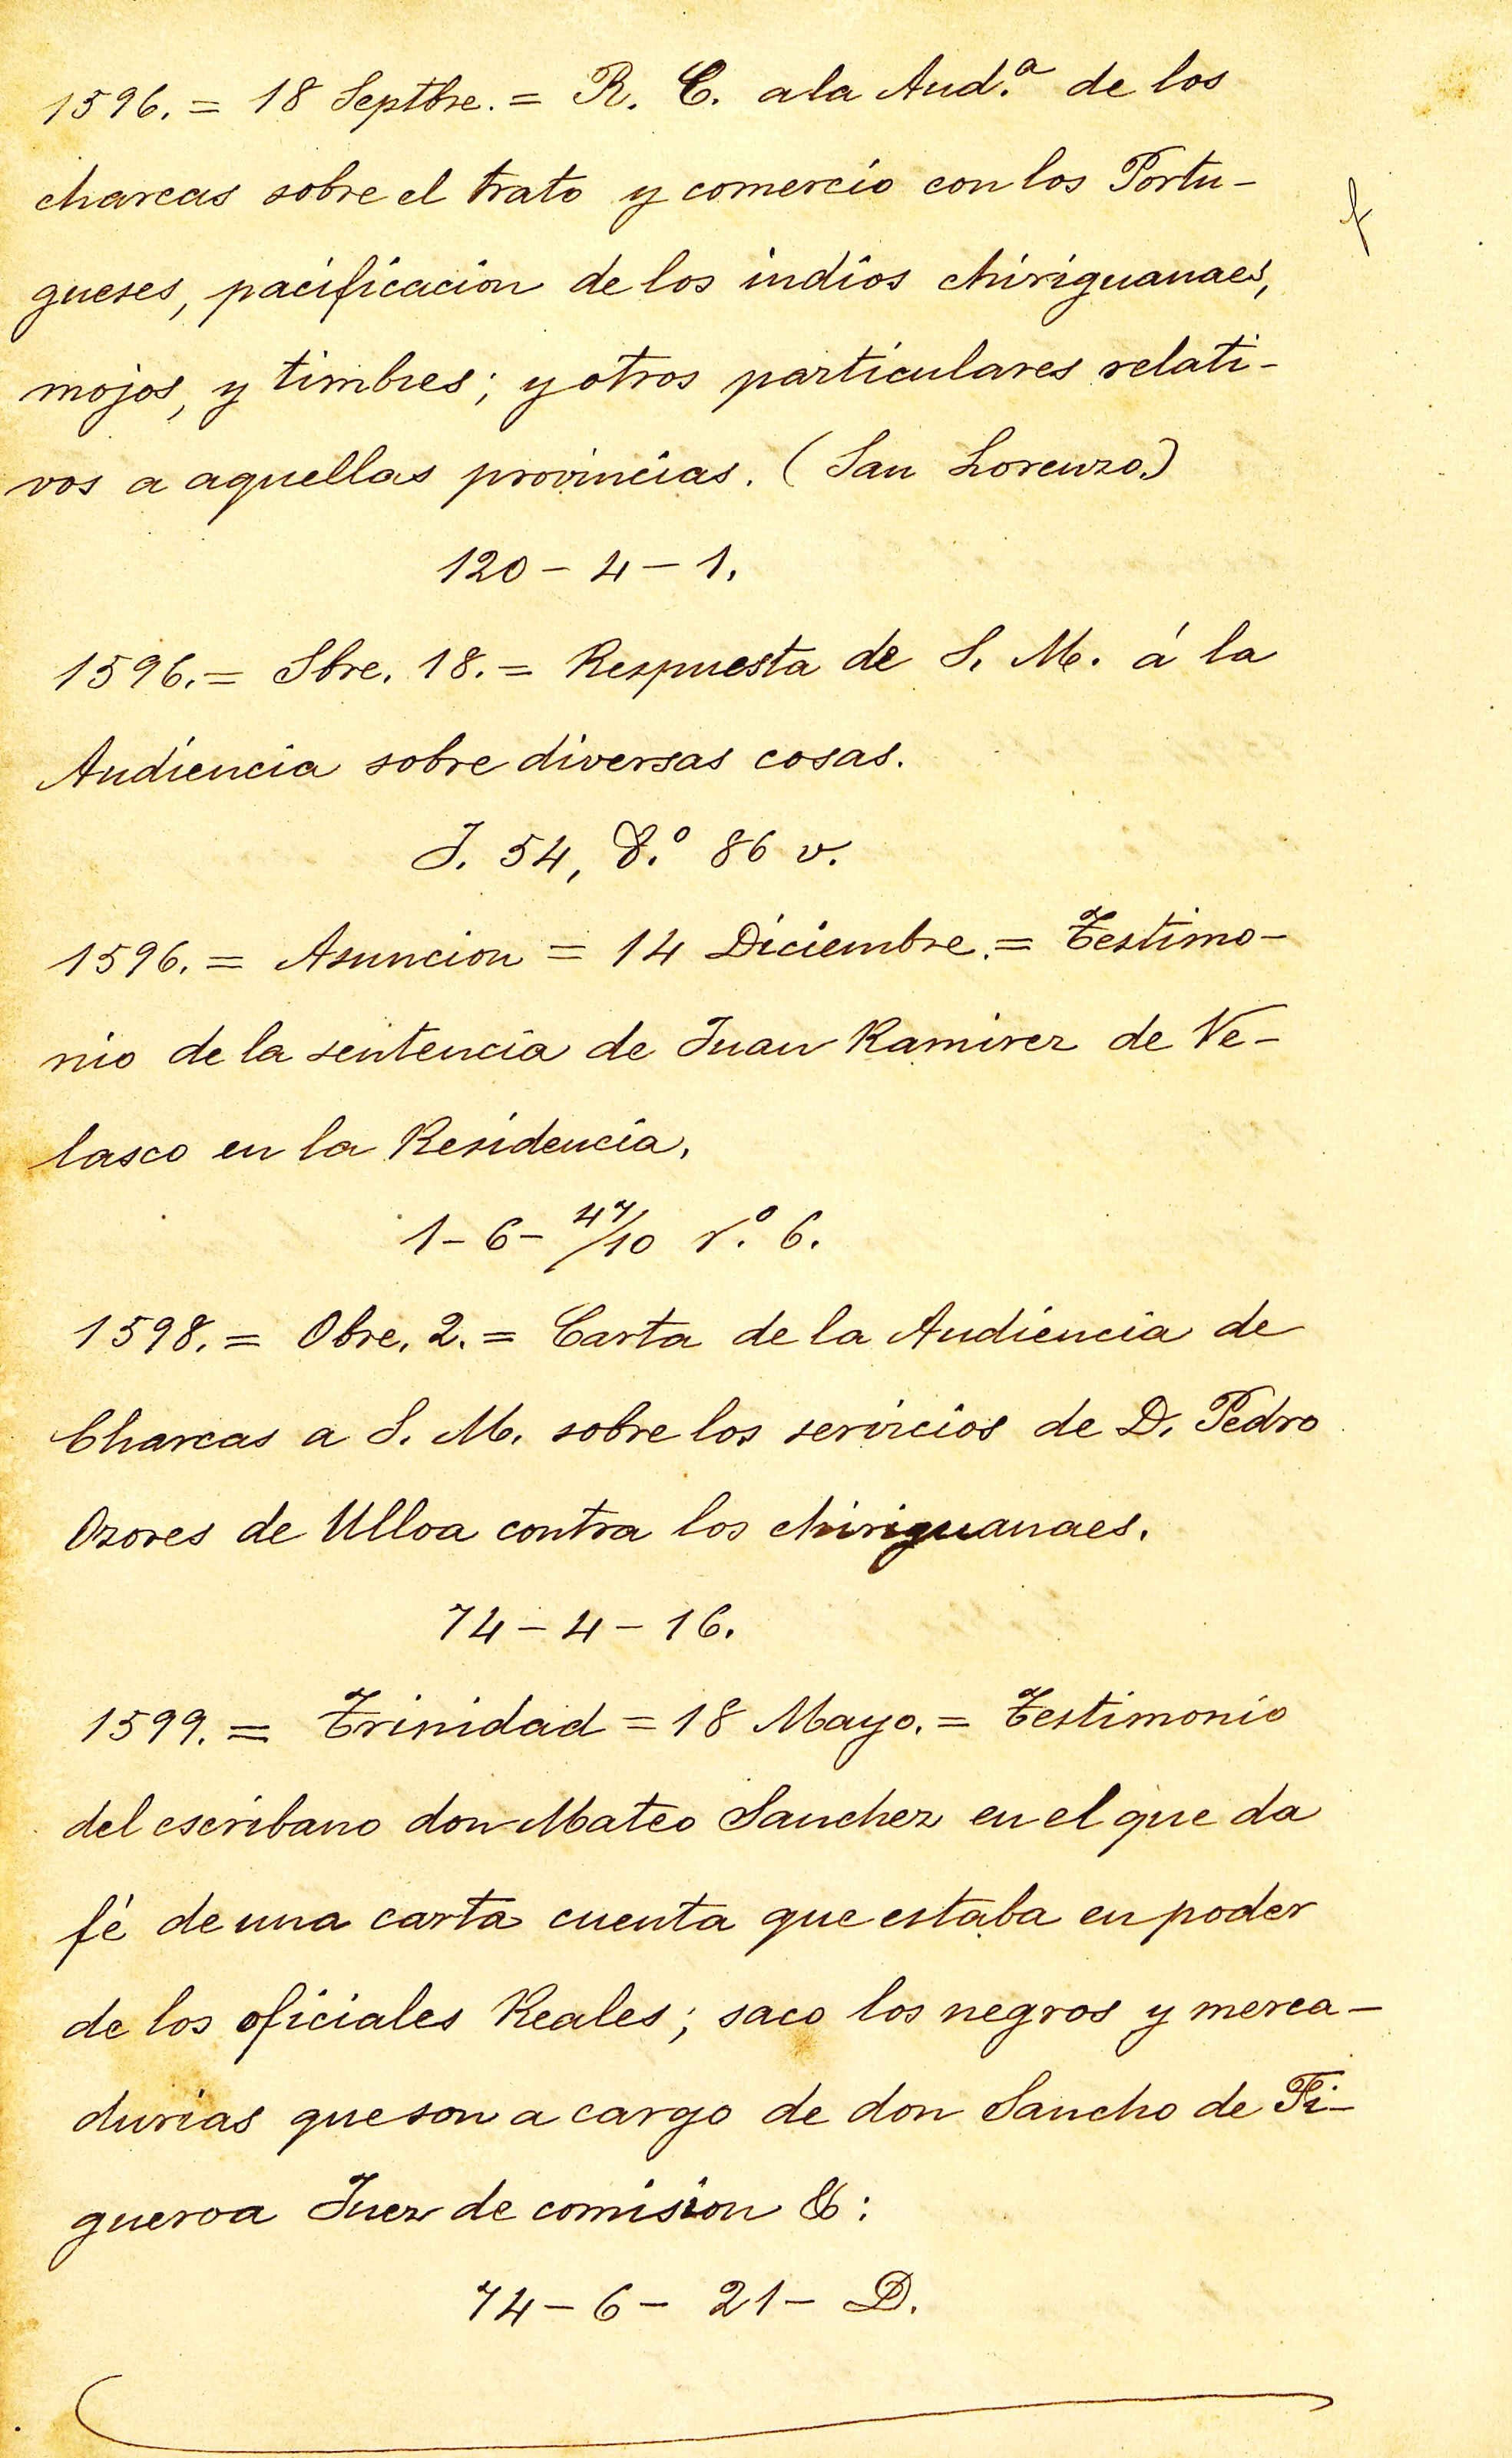 1596. = 18 Septbre. = R. C. a la Aud.ª de los
charcas sobre el trato y comercio con los Portu-
gueses, pacificacion de los indios chiriguanaes,
mojos, y timbres; y otros particulares relati-
vos a aquellas provincias. (San Lorenzo.)
120 - 4 - 1.
1596. = Sbre. 18. = Respuesta de S. M. á la
Audiencia sobre diversas cosas.
J. 54, F.º 86 v.
1596. = Asuncion = 14 Diciembre. = Testimo-
nio de la sentencia de Juan Ramirez de Ve-
lasco en la Residencia.
1 - 6 - 47/10 r.º 6.
1598. = Obre. 2. = Carta de la Audiencia de
Charcas a S. M. sobre los servicios de D. Pedro
Ozores de Ulloa contra los chiriguanaes.
74 - 4 - 16.
1599. = Trinidad = 18 Mayo. = Testimonio
del escribano don Mateo Sanchez en el que da
fé de una carta cuenta que estaba en poder
de los oficiales Reales; saco los negros y merca-
durias que son a cargo de don Sancho de Fi-
gueroa Juez de comision &:
74 - 6 - 21 - D.